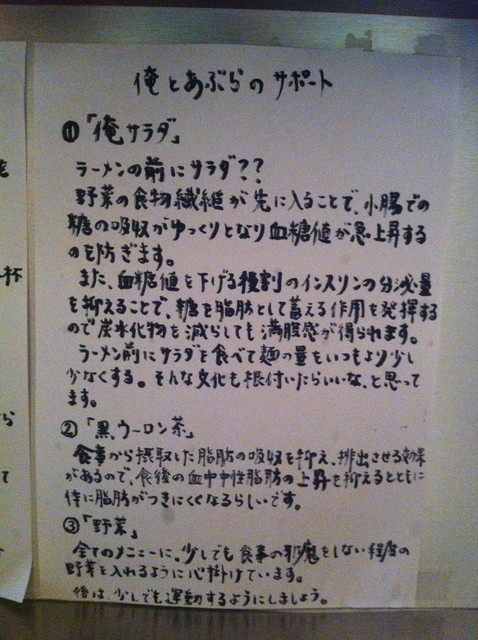 俺とあぶらのサポート
①「俺サラダ」
ラーメンの前にサラダ??
野菜の食物繊維が先に入ることで、小腸での
糖の吸収がゆっくりとなり血糖値が急上昇する
のを防ぎます。
また、血糖値を下げる役割のインスリンの分泌量
を抑えることで、糖を脂肪として蓄える作用を発揮する
ので炭水化物を減らしても満腹感が得られます。
ラーメン前にサラダを食べて麺の量をいつもより少し
少なくする。そんな文化も根付いたらいいな、と思って
ます。
②「黒ウーロン茶」
食事から摂取した脂肪の吸収を抑え、排出させる効果
があるので、食後の血中中性脂肪の上昇を抑えるとともに
体に脂肪がつきにくくなるらしいです。
③「野菜」
全てのメニューに、少しでも食事の邪魔をしない程度の
野菜を入れるように心掛けています。
後は少しでも運動するようにしましょう。
杯
ら
て